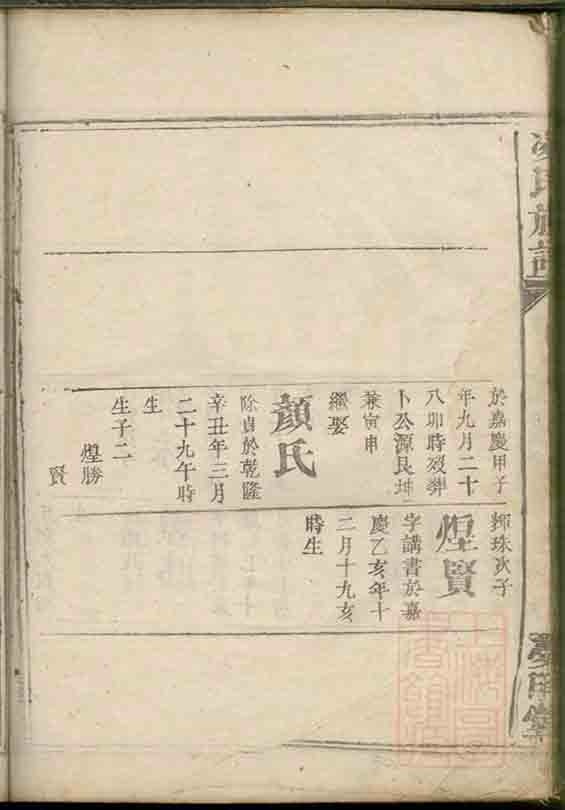 氏族譜
於嘉慶甲子
年九月二十
八卯時歿葬
卜公源艮坤
兼寅申
繼娶
顏氏
除貞於乾隆
辛丑年三月
二十九午時
生
生子二
煌勝
賢
輝珠次子
煌賢
字講書於嘉
慶乙亥年十
二月十九亥
時生
上海圖
書館藏